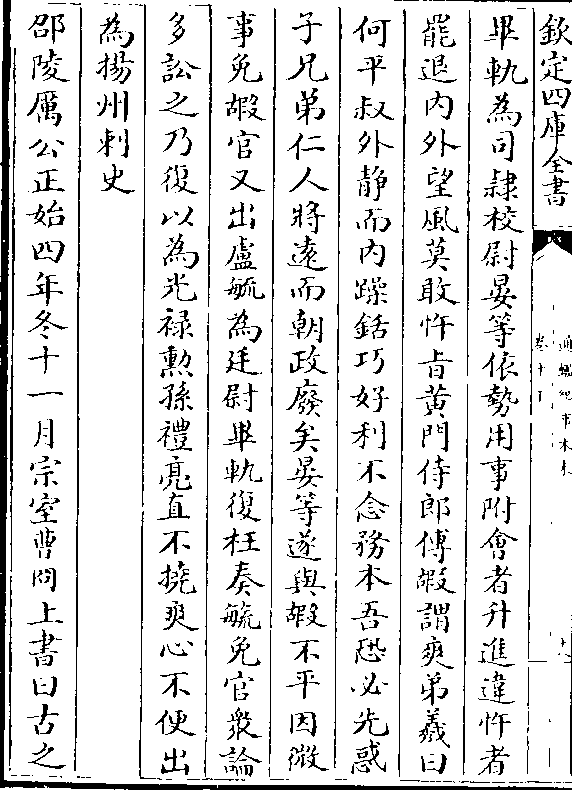 欽定四庫全書
畢軌為司隷校尉晏等依勢用事附會者升進違忤者
罷退內外望風莫敢忤㫖黃門侍郎傅嘏謂爽弟羲曰
何平叔外静而内躁銛巧好利不念務本吾恐必先惑
子兄弟仁人將逺而朝政廢矣晏等遂與嘏不平因微
事免嘏官又出盧毓為廷尉畢軌復枉奏毓免官衆論
多訟之乃復以為光禄勲孫禮亮直不撓爽心不便出
為揚州刺史
邵陵厲公正始四年冬十一月宗室曹冏上書曰古之